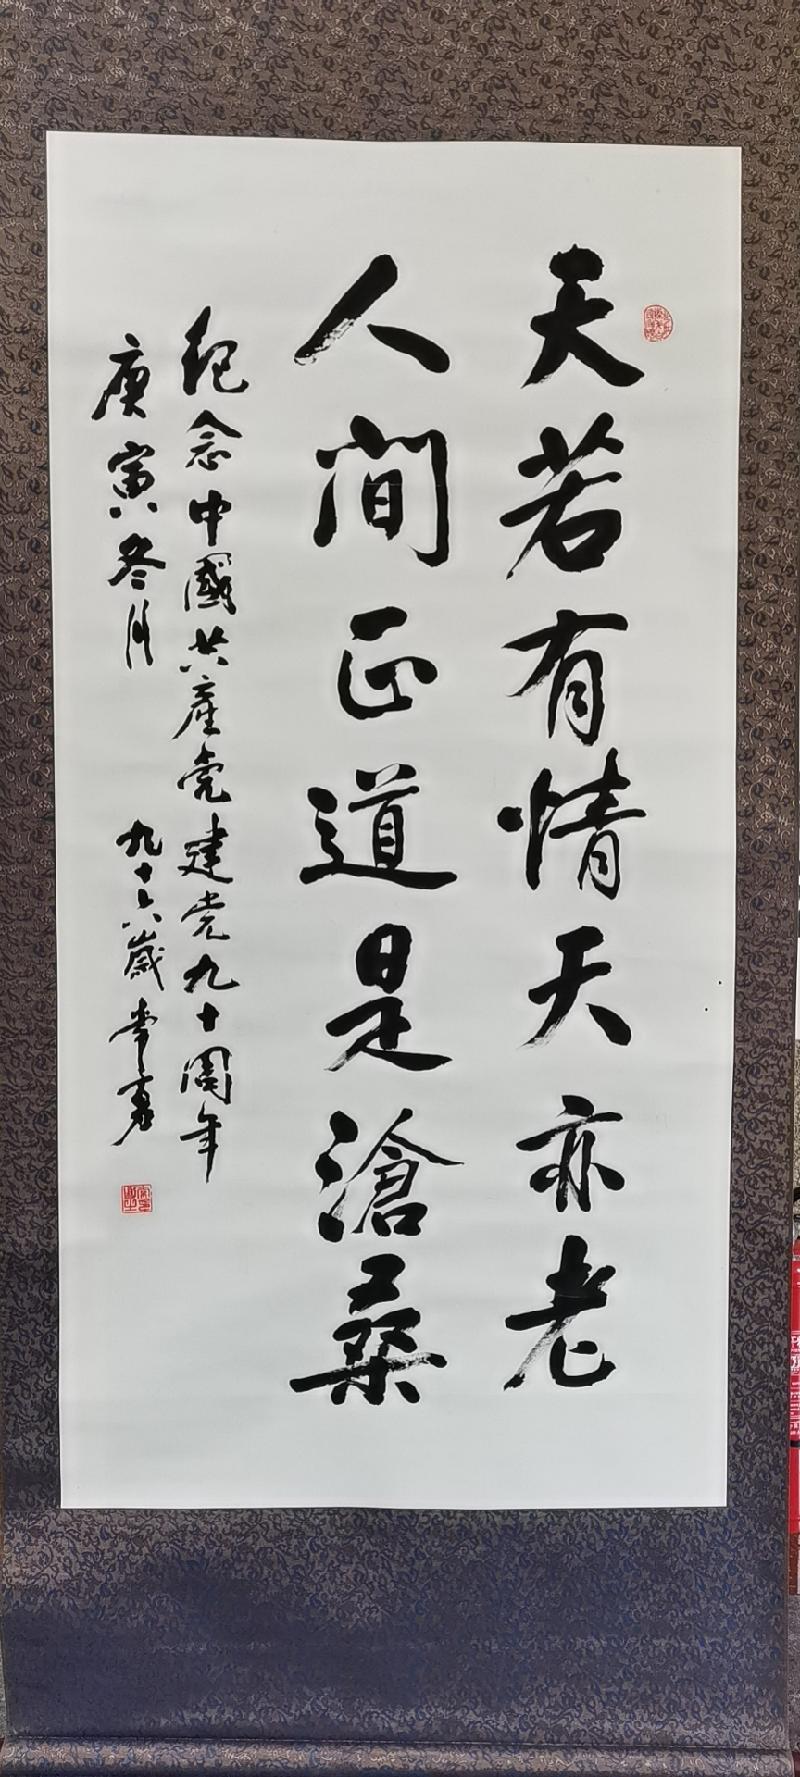 天若有情天亦老
人间正道是滄桑
纪念中國共產党建党九十周年
庚寅冬月
九十六歲